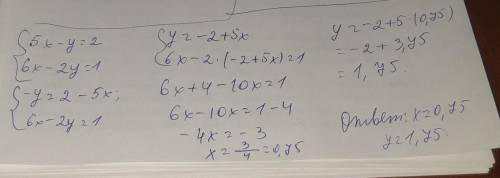 {5x-y=2
{6x-2y=1
{-y=2-5x;
{6x-2y=1
{y=-2+5x
{6x-2·(-2+5x)=1
6x+4-10x=1
6x-10x=1-4
-4x=-3
x=3/4=0,75
y=-2+5·(0,75)
=-2+3,75
=1,75.
Ответ: x=0,75
y=1,75.